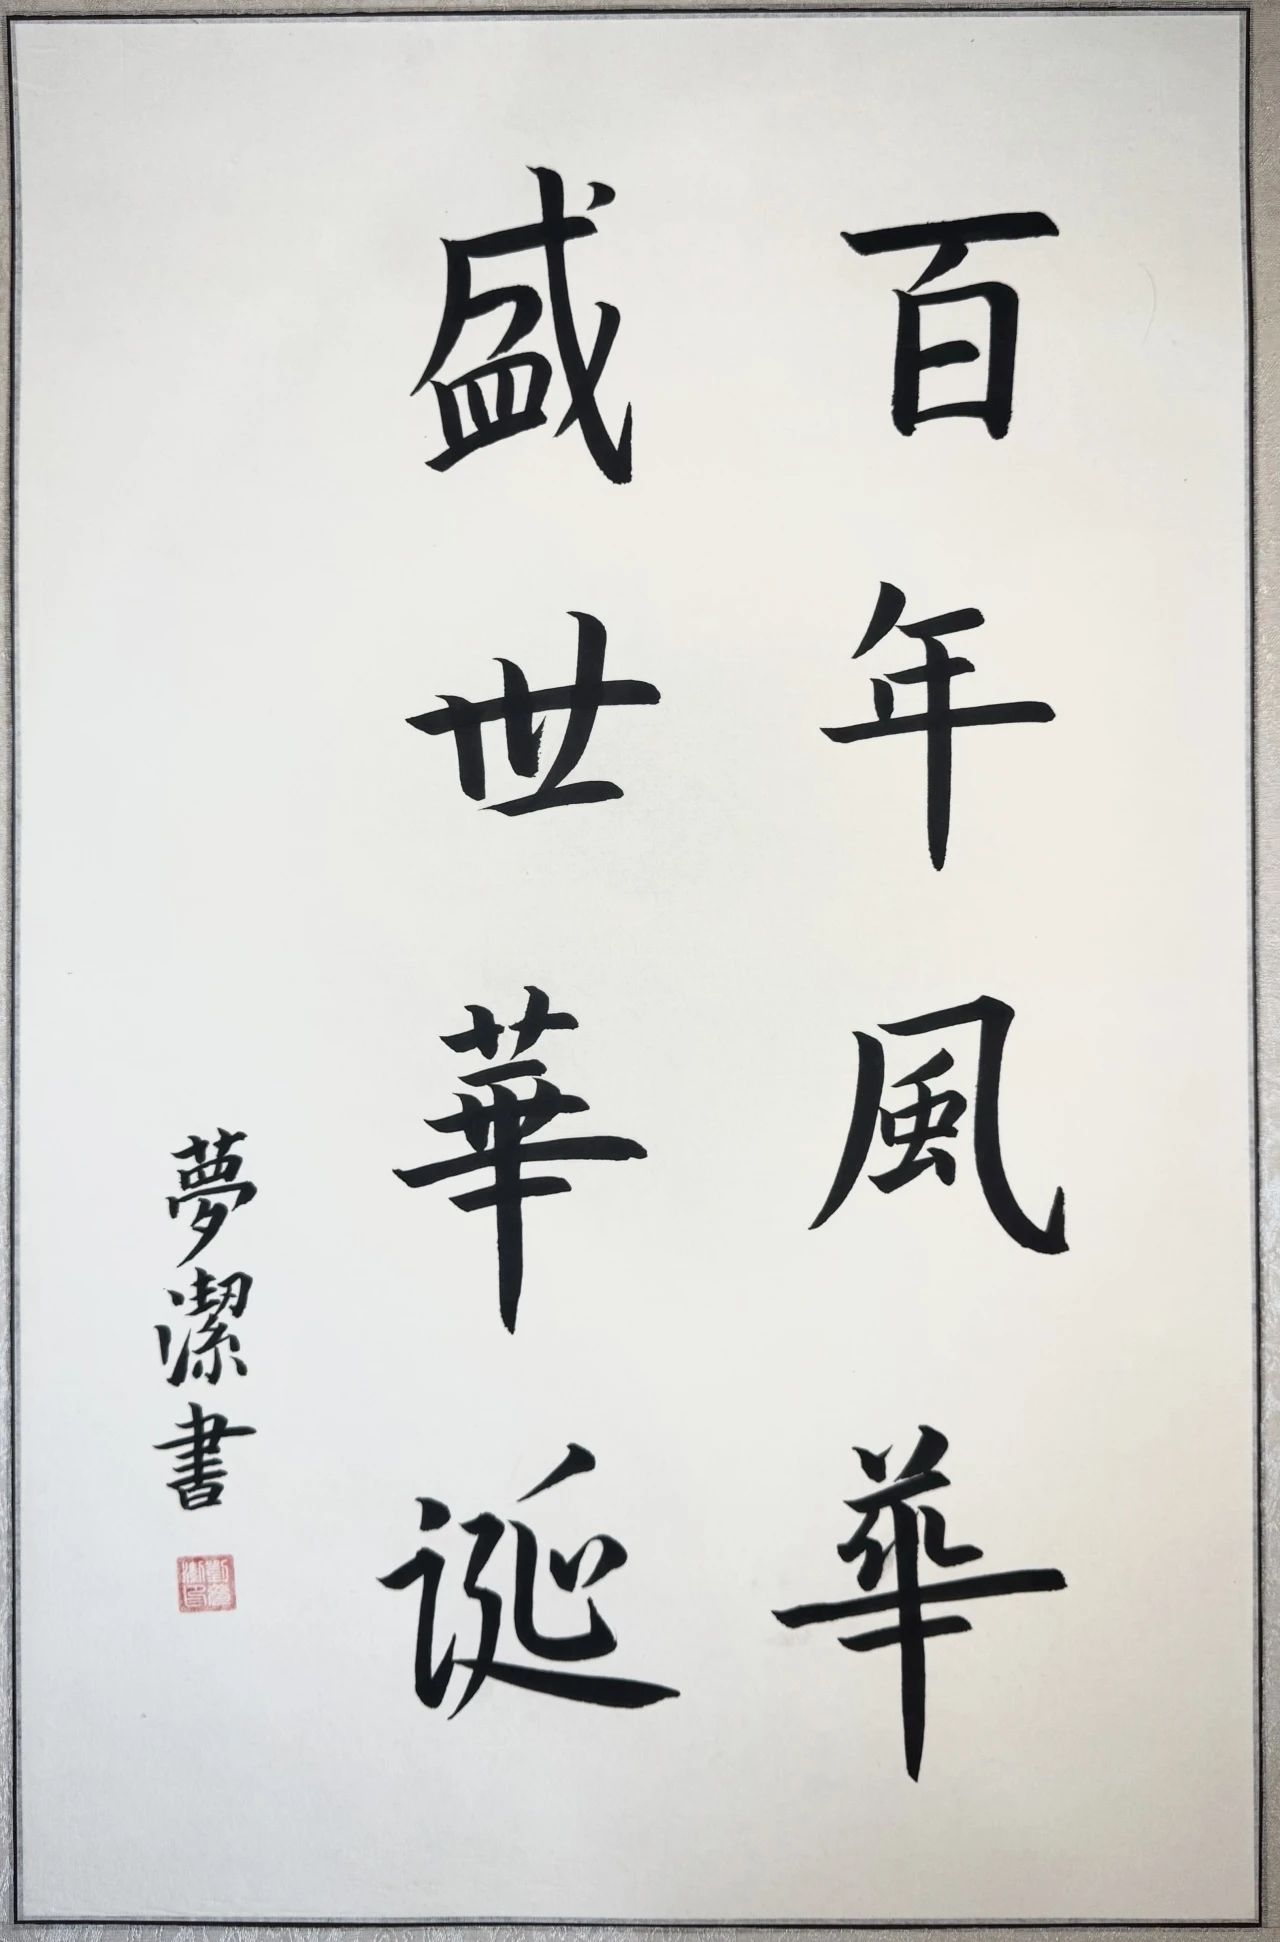 百年風華
盛世華誕
夢潔書